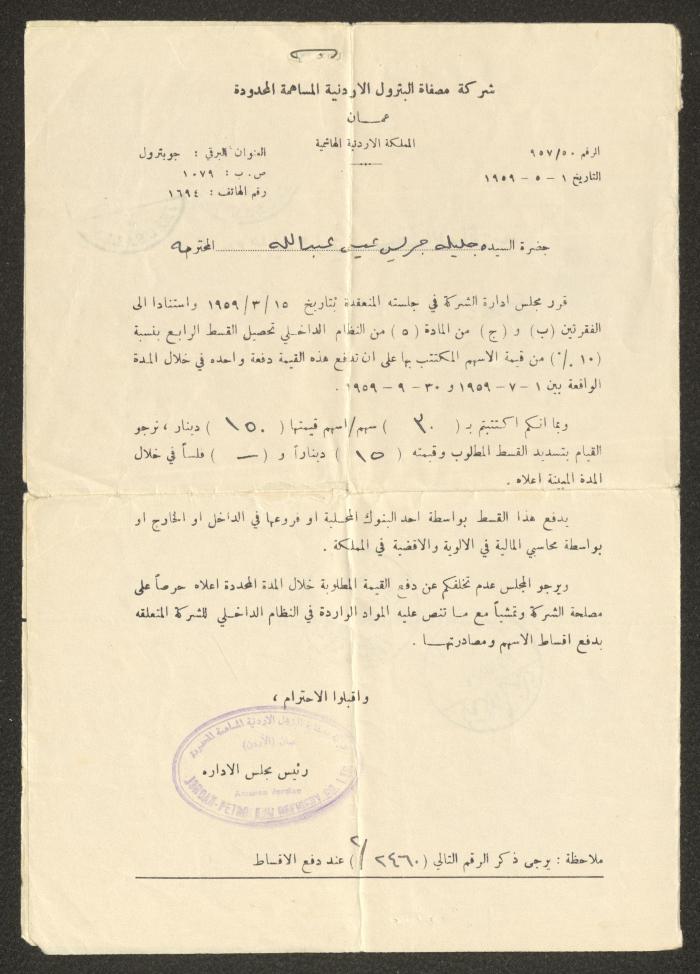 شركة مصفاة البترول الاردنية المساهمة المحدودة
عمـــان
المملكة الاردنية الهاشمية
الرقم ٩٥٧/٥٠
التاريخ ١ - ٥ - ١٩٥٩
العنوان البرقي : جوبترول
ص.ب : ١٠٧٩
رقم الهاتف : ١٦٩٤
حضرة السيده جليله جريس عيسى عبدالله المحترمه
قرر مجلس ادارة الشركة في جلسته المنعقدة بتاريخ ١٥ /٣/ ١٩٥٩ واستنادا الى
الفقرتين (ب) و (ج) من المادة (٥) من النظام الداخلي تحصيل القسط الرابع بنسبة
(١٠ ٪) من قيمة الاسهم المكتتب بها على ان تدفع هذه القيمة دفعة واحده في خلال المدة
الواقعة بين ١ -٧- ١٩٥٩ و ٣٠ - ٩ - ١٩٥٩ .
وبما انكم اكتتبتم بـ ( ٣٠ ) سهم/اسهم قيمتها ( ١٥٠ ) دينار ، نرجو
القيام بتسديد القسط المطلوب وقيمته ( ١٥ ) ديناراً و ( — ) فلساً في خلال
المدة المبينة اعلاه .
يدفع هذا القسط بواسطة احد البنوك المحلية او فروعها في الداخل او الخارج او
بواسطة محاسبي المالية في الالوية والاقضية في المملكة .
ويرجو المجلس عدم تخلفكم عن دفع القيمة المطلوبة خلال المدة المحددة اعلاه حرصاً على
مصلحة الشركة وتمشياً مع ما تنص عليه المواد الواردة في النظام الداخلي للشركة المتعلقه
بدفع اقساط الاسهم ومصادرتهـا .
واقبلوا الاحترام ،
شركة مصفاة البترول الاردنية المساهمة المحدودة
عمان (الأردن)
رئيس مجلس الاداره
Amman Jordan
JORDAN PETROLEUM REFINERY CO. LTD.
ملاحظة : يرجى ذكر الرقم التالي (٢٤٦٠/٢) عند دفع الاقساط